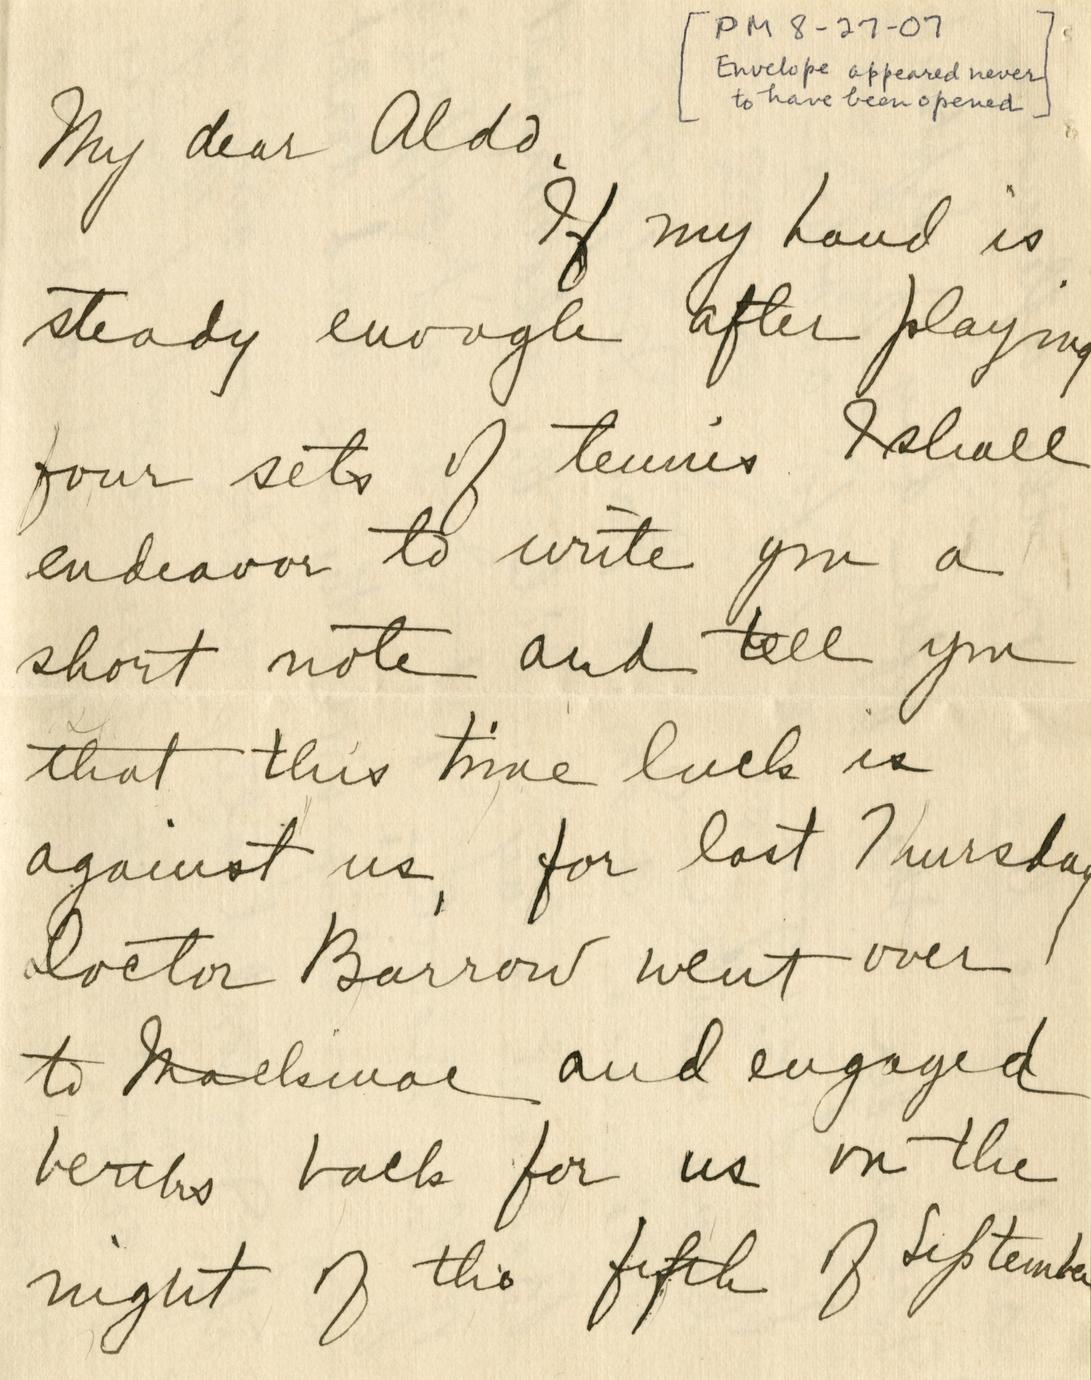 [PM 8-27-07
Envelope appeared never
to have been opened]
My dear Aldo,
If my hand is
steady enough after playing
four sets of tennis I shall
endeavor to write you a
short note and tell you
that this time luck is
against us, for last Thursday
Doctor Barrow went over
to Mackinac and engaged
berths back for us on the
night of the fifth of September